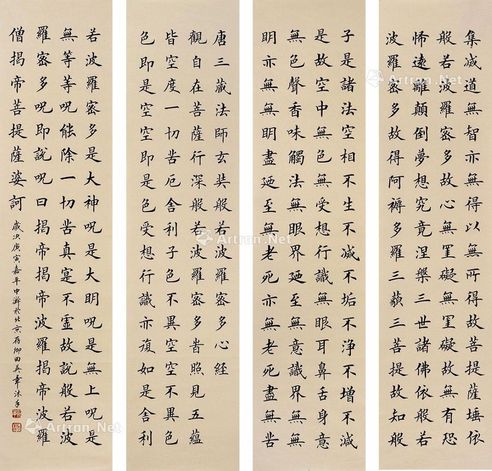 唐三藏法師玄奘般若波羅密多心經
觀自在菩薩行深般若波羅密多旹照見五蘊
皆空度一切苦厄舍利子色不異空空不異色
色即是空空即是色受想行識亦復如是舍利
子是諸法空相不生不滅不垢不淨不增不減
是故空中無色無受想行識無眼耳鼻舌身意
無色聲香味觸法無眼界廼至無意識界無
明亦無無明盡廼至無老死亦無老死盡無苦
集滅道無智亦無得以無所得故菩提薩埵依
般若波羅密多故心無罣礙無罣礙故無有恐
怖遠離顛倒夢想究竟涅槃三世諸佛依般若
波羅密多故得阿耨多羅三藐三菩提故知般
若波羅密多是大神呪是大明呪是無上呪是
無等等呪能除一切苦真寔不虛故說般若波
羅密多呪即說呪曰揭帝揭帝波羅揭帝波羅
僧揭帝菩提薩婆訶 歲次庚寅嘉平中澣於北京 田英章沐手
Artron.Net
Artron.Net
Artron.Net
Artron.Net